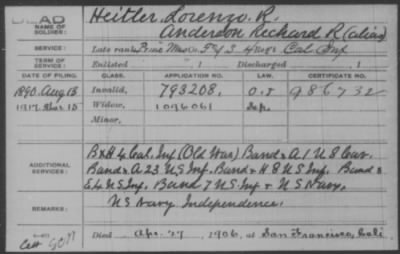 DEAD
NAME OF SOLDIER:
Heitler, Lorenzo. R.
Anderson Reckard R (alias)
SERVICE:
Late rank, Prin. Mus Co. F & S, 4 Reg't Cal. Inf.
TERM OF SERVICE:
Enlisted , 1 Discharged , 1
DATE OF FILING. CLASS. APPLICATION NO. LAW. CERTIFICATE NO.
1890. Aug 13 Invalid, 793208, O.S 986732
1917. 15 Widow, 1096061
Minor,
ADDITIONAL SERVICES:
B & H 4 Cal. Inf (Old War) Band & A 1 U S Cav.
Band & A 23 U S Inf. Band & H 8 U S Inf. Band &
E 4 U S Inf. Band 7 U S Inf & U S Navy.
REMARKS:
U S Navy Independence.
Died Apr. 27, 1906, at San Francisco, Cali